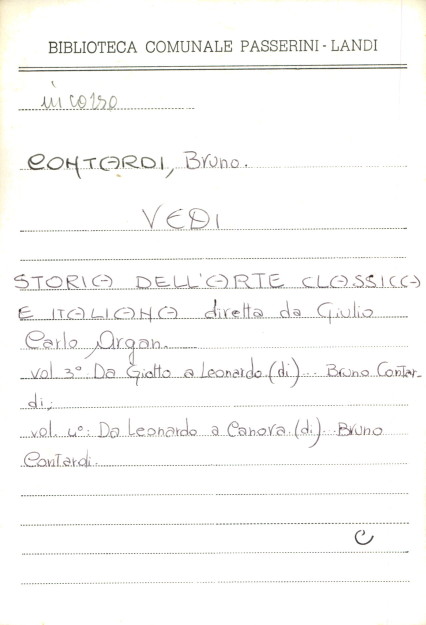 BIBLIOTECA COMUNALE PASSERINI - LANDI
in corso
CONTARDI, Bruno.
VEDI
STORIA DELL'ARTE CLASSICA
E ITALIANA diretta da Giulio
Carlo Argan.
vol 3° Da Giotto a Leonardo (di)... Bruno Contar-
di;
vol. 4°: Da Leonardo a Canova (di)... Bruno
Contardi.
C